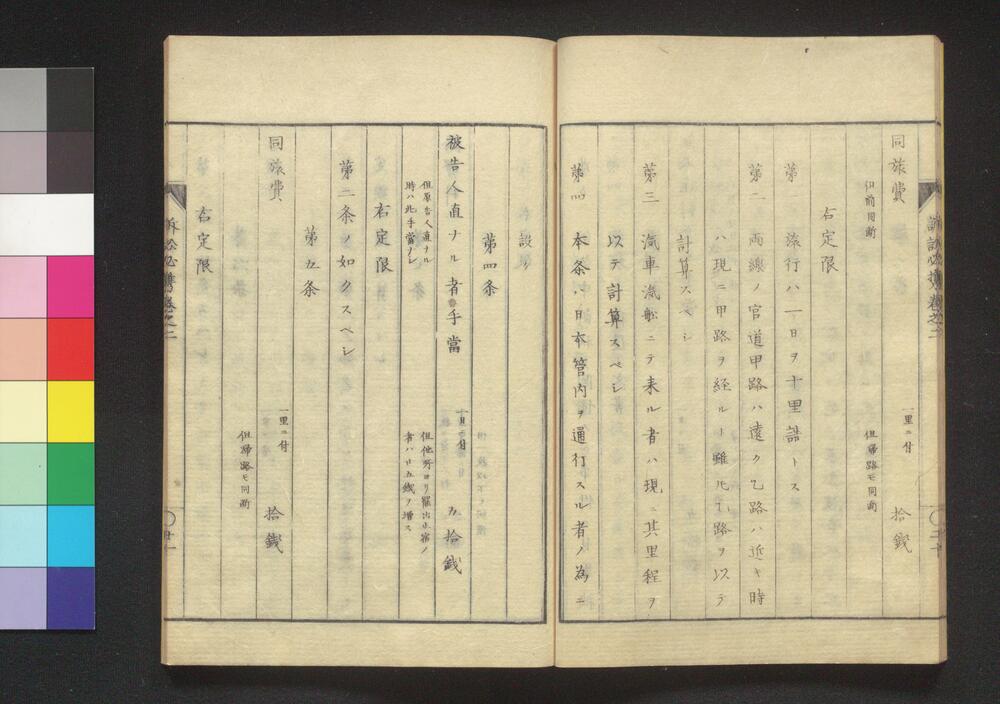 同旅費 一里ニ付 拾錢
但前同断 但帰路モ同断
右定限
第一 旅行ハ一日ヲ十里詰トス
第二 両線ノ官道甲路ハ遠ク乙路ハ近キ時
ハ現ニ甲路ヲ経ルト雖ルモ乙路ヲ以テ
計算スベシ
第三 汽車滊舩ニテ来ル者ハ現ニ其里程ヲ
以テ計算スベシ
第四 本条ハ日本管内ヲ通行スル者ノ為ニ
設ク
第四条
被告人直ナル者手當 一日ニ付 五拾錢
但原告人直ナル
時ハ此手當ナシ
但他所ヨリ罷出止宿ノ
者ハ廿五錢ヲ増ス
右定限
第二条ノ如クスベシ
第五条
同旅費 一里ニ付 拾錢
但帰路モ同断
右定限
訴訟必携巻之二
二十
訴訟必携巻之二
廿一